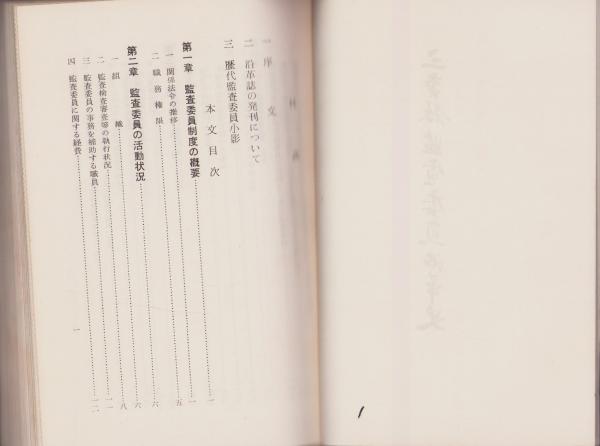 一 序文
二 沿革誌の発刊について
三 歴代監査委員小影
本文目次
第一章 監査委員制度の概要……一
一 関係法令の推移……一
二 職務権限……五
第二章 監査委員の活動状況……六
一 組織……六
二 監査検査審査等の執行状況……八
三 監査委員の事務を補助する職員……一一
四 監査委員に関する経費……一二
一